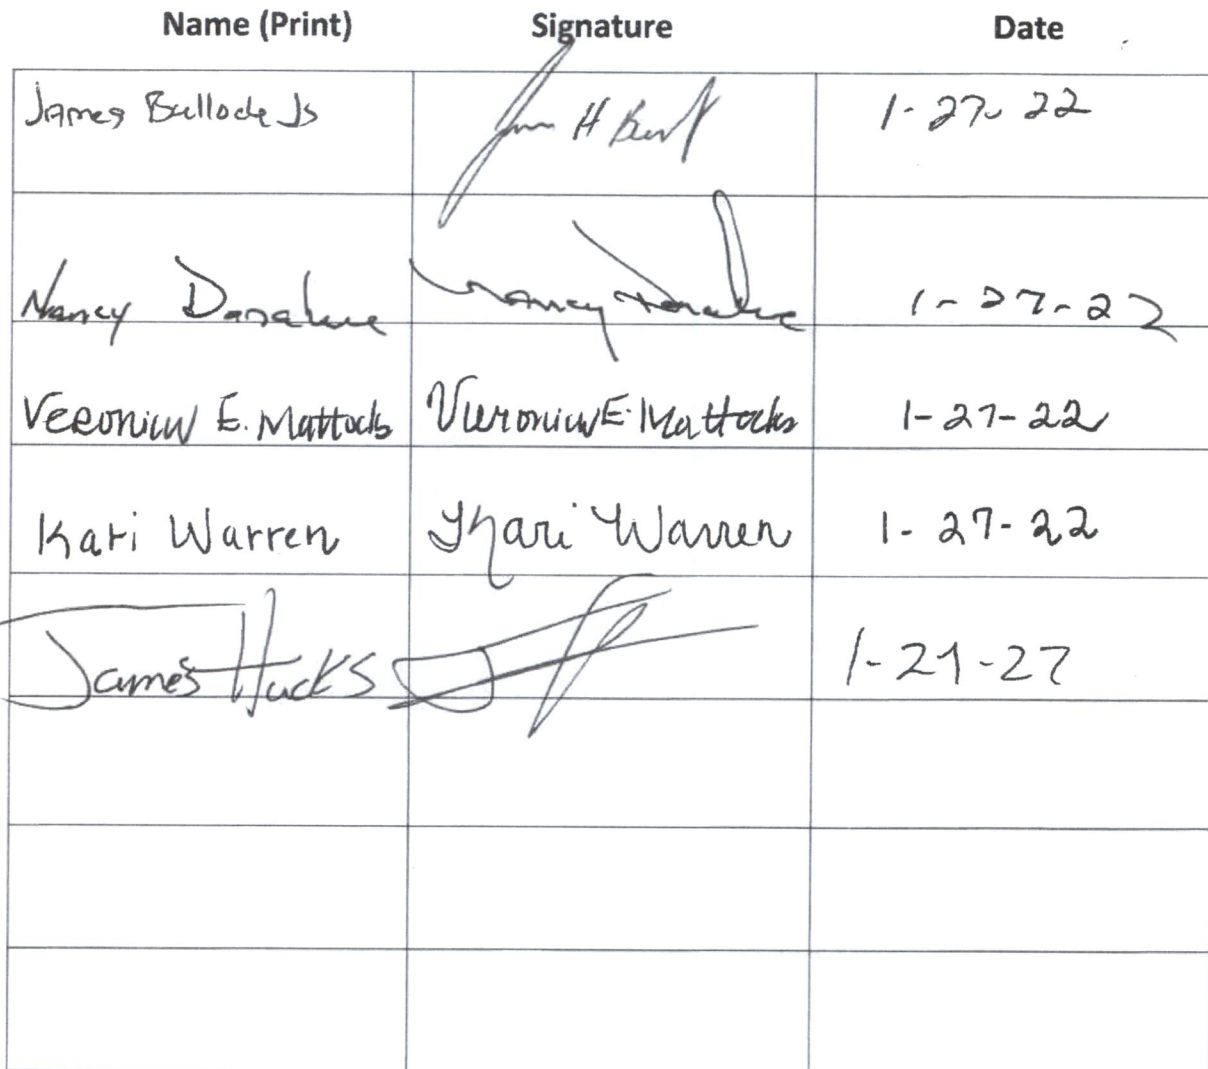 Name (Print) Signature Date
James Bullock Jr 1-27-22
Nancy Donahue Nancy Donahue 1-27-22
Veronica E. Mattocks Veronica E. Mattocks 1-27-22
Kari Warren Kari Warren 1-27-22
James Hucks 1-27-27